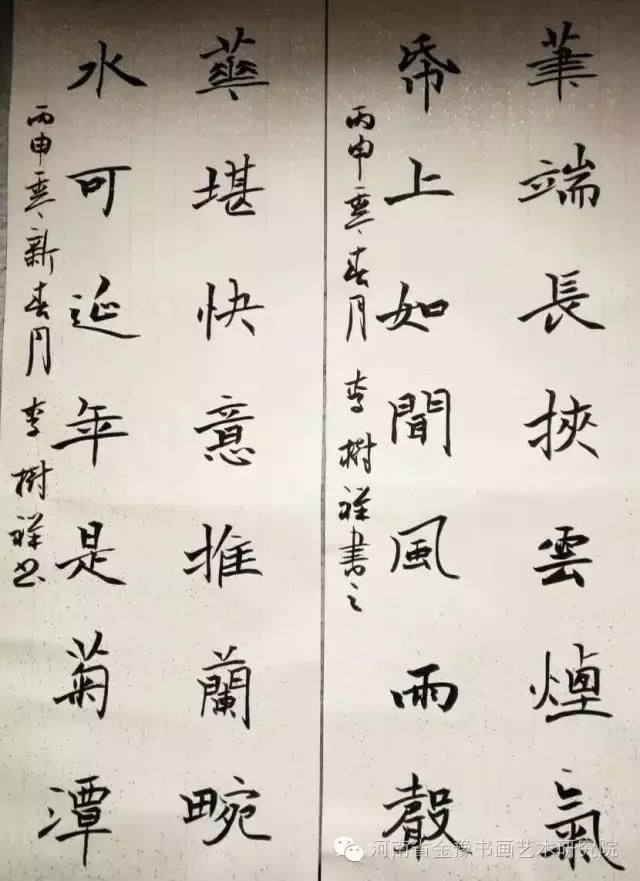 筆端長挾雲煙氣
帋上如聞風雨聲
丙申春月 李樹祥書之
華堪快意推蘭畹
水可延年是菊潭
丙申新春月 李樹祥書
河南省金豫书画艺术研究院